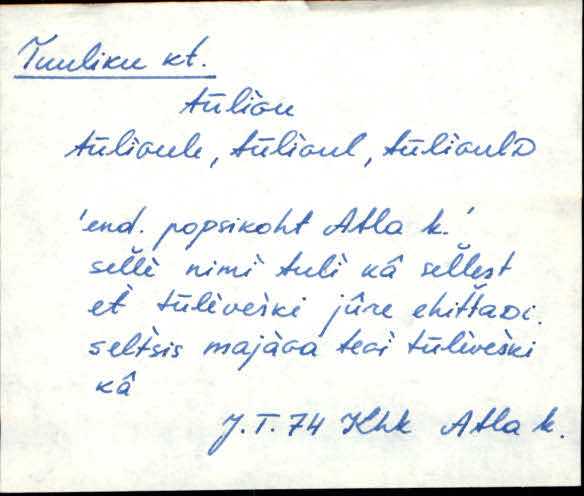 Tuuliku kt.
tūliɢu
tūliɢule, tūliɢul, tūliɢulD
'end. popsikoht Atla k.'
sellè nimì tulì kâ sellest
et̀ tūlìveìski jûre ehittaDi.
selt̀sis majàɢa teɢi tūlìveìski
kâ
J.T. 74 Khk Atla k.